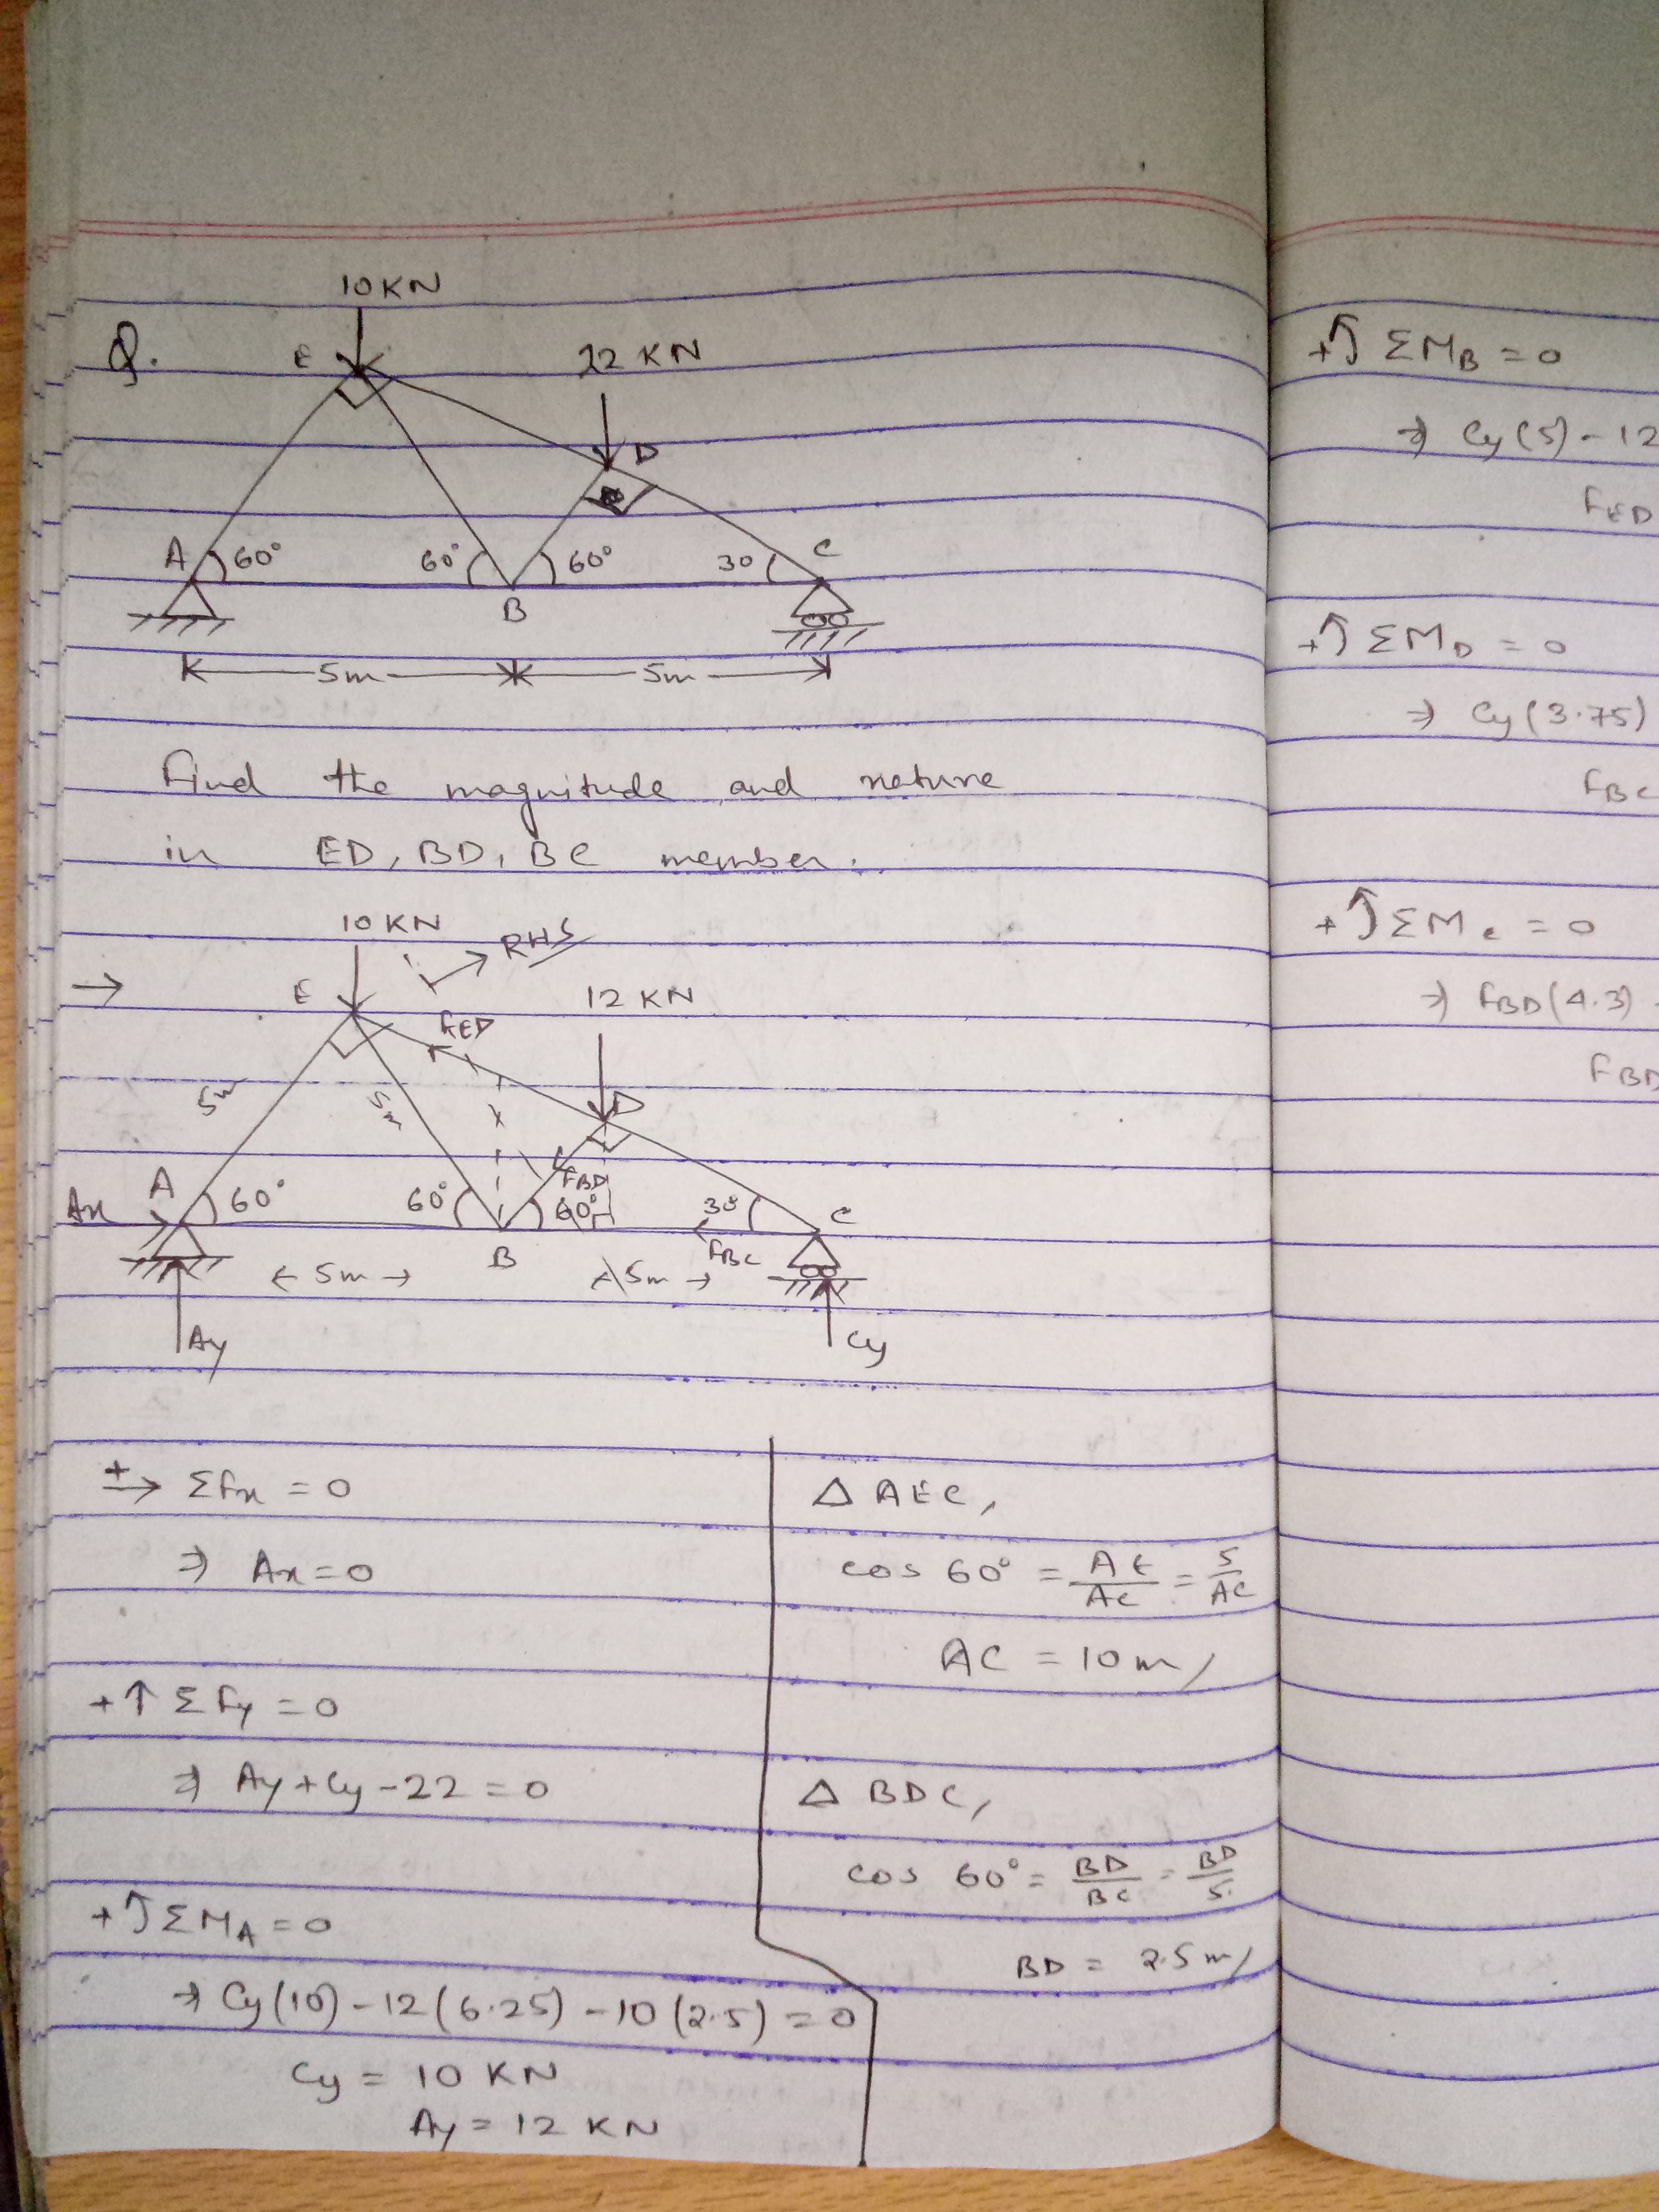 10KN
Q.
E
22 KN
D
A 60° 60° 60° 30 C
B
5m 5m
Find the magnitude and nature
in ED, BD, BC member.
10 KN
RHS
→ E
12 KN
FED
5m 5m
D
FBD
Ax A 60° 60° 60° 30° C
B FBC
← 5m → ← 5m →
Ay Cy
+→ ΣFx = 0
⇒ Ax = 0
+↑ ΣFy = 0
⇒ Ay + Cy - 22 = 0
+↺ ΣMA = 0
⇒ Cy(10) - 12(6.25) - 10(2.5) = 0
Cy = 10 KN
Ay = 12 KN
Δ AEC,
cos 60° = AE/AC = 5/AC
AC = 10m/
Δ BDC,
cos 60° = BD/BC = BD/5
BD = 2.5m/
+↺ ΣMB = 0
⇒ Cy(5) - 12
FED
+↺ ΣMD = 0
⇒ Cy(3.75)
FBC
+↺ ΣMc = 0
⇒ FBD(4.3)
FBD